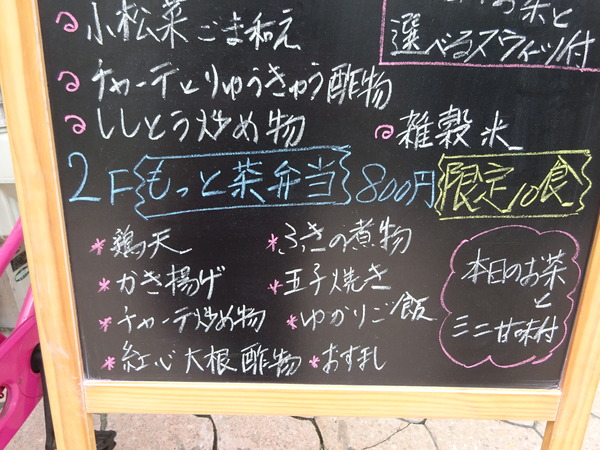 小松菜ごま和え
お茶と
選べるスウィーツ付
チャーテとりゅうきゅう酢物
ししとう炒め物
雑穀米
2F もっと茶弁当 800円 限定10食
鶏天
ふきの煮物
かき揚げ
玉子焼き
チャーテ炒め物
ゆかりご飯
紅心大根酢物
おすまし
本日のお茶
と
ミニ甘味付